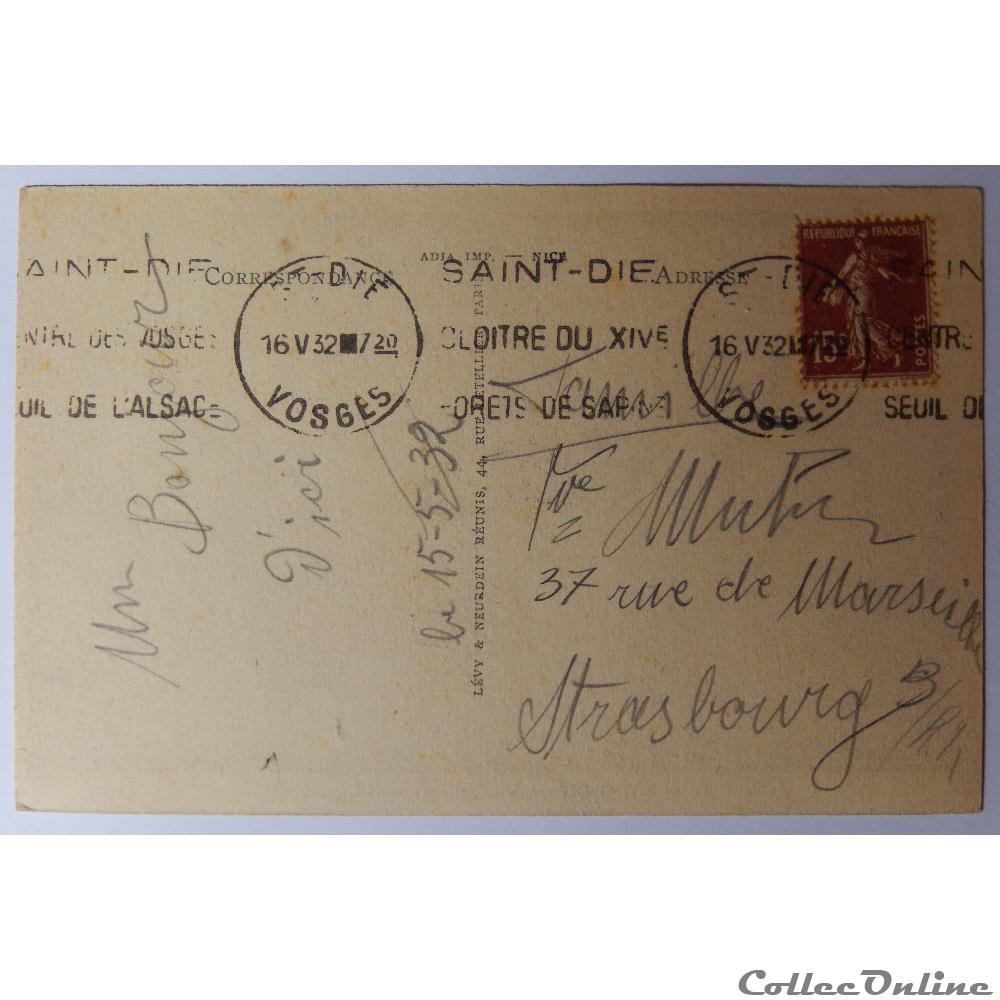 CORRESPONDANCE
ADIA IMP. — NICE
ADRESSE
AINT-DIE
NTRE DES VOSGES
UIL DE L'ALSACE
DIE
16 V 32 720
VOSGES
SAINT-DIE
CLOITRE DU XIVE
FORETS DE SAPIN
DIE
16 V 32
VOSGES
IN
CENTRE
SEUIL DE
REPUBLIQUE FRANÇAISE
15c
POSTES
Un Bonjour
D'ici
le 15-5-32
LÉVY & NEURDEIN RÉUNIS, 44, RUE LETELLIER, PARIS
Famille
Vve
37 rue de Marseille
Strasbourg
B/Rh
CollecOnline